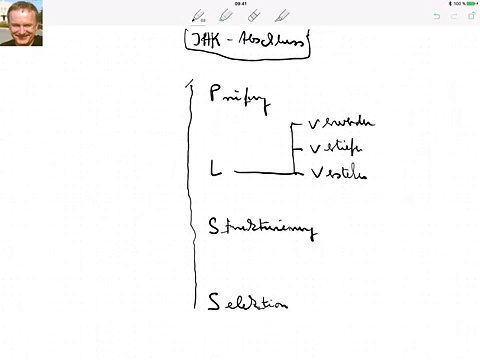 09:41
100 %
IHK - Abschluss
Prüfung
Verwenden
Vertiefe
L
Verstehen
Strukturierung
Selektion